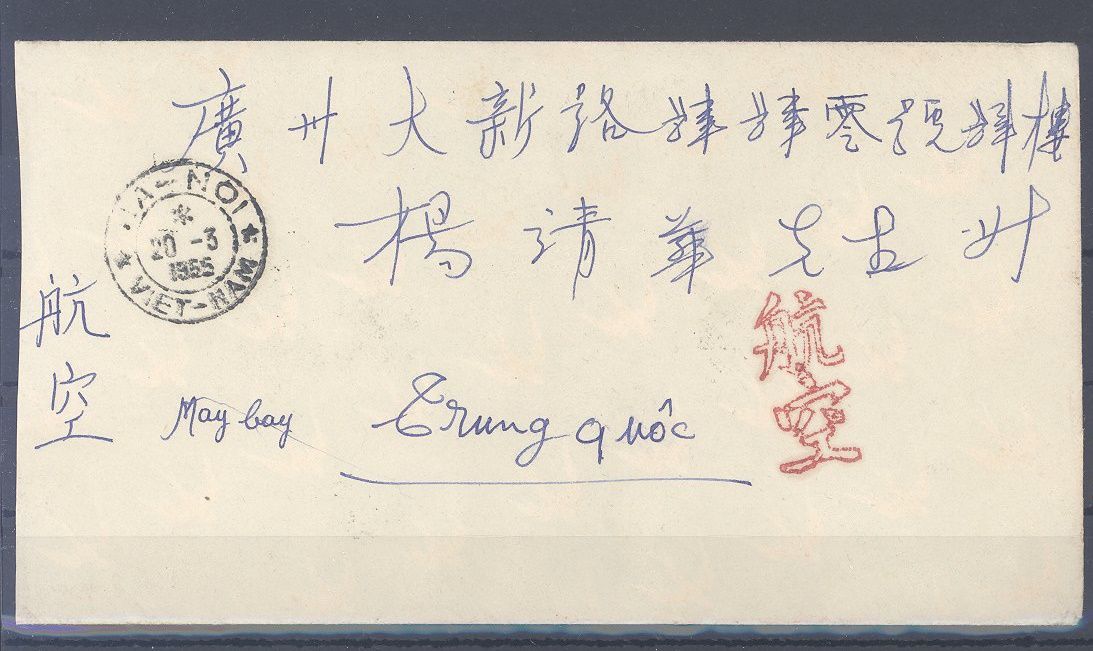 廣州大新路肆肆零號肆樓
楊靖華先生
HA-NOI
20-3
1955
VIET-NAM
航空
May bay
Trung quốc
航空